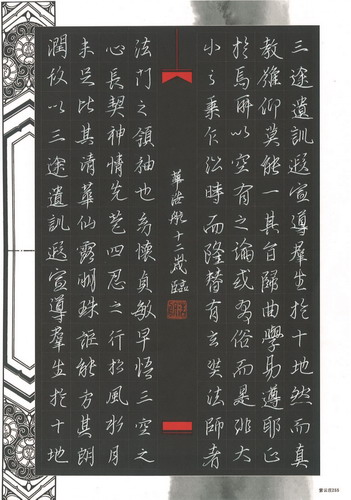 三途遺訓遐宣導群生於十地然而真
教難仰莫能一其旨歸曲學易遵耶正
於焉所以空有之論或習俗而是非大
小之乘乍沿時而隆替有玄奘法師者
華海航十二歲臨
法門之領袖也幼懷貞敏早悟三空之
心長契神情先苞四忍之行松風水月
未足比其清華仙露明珠詎能方其朗
潤故以三途遺訓遐宣導群生於十地